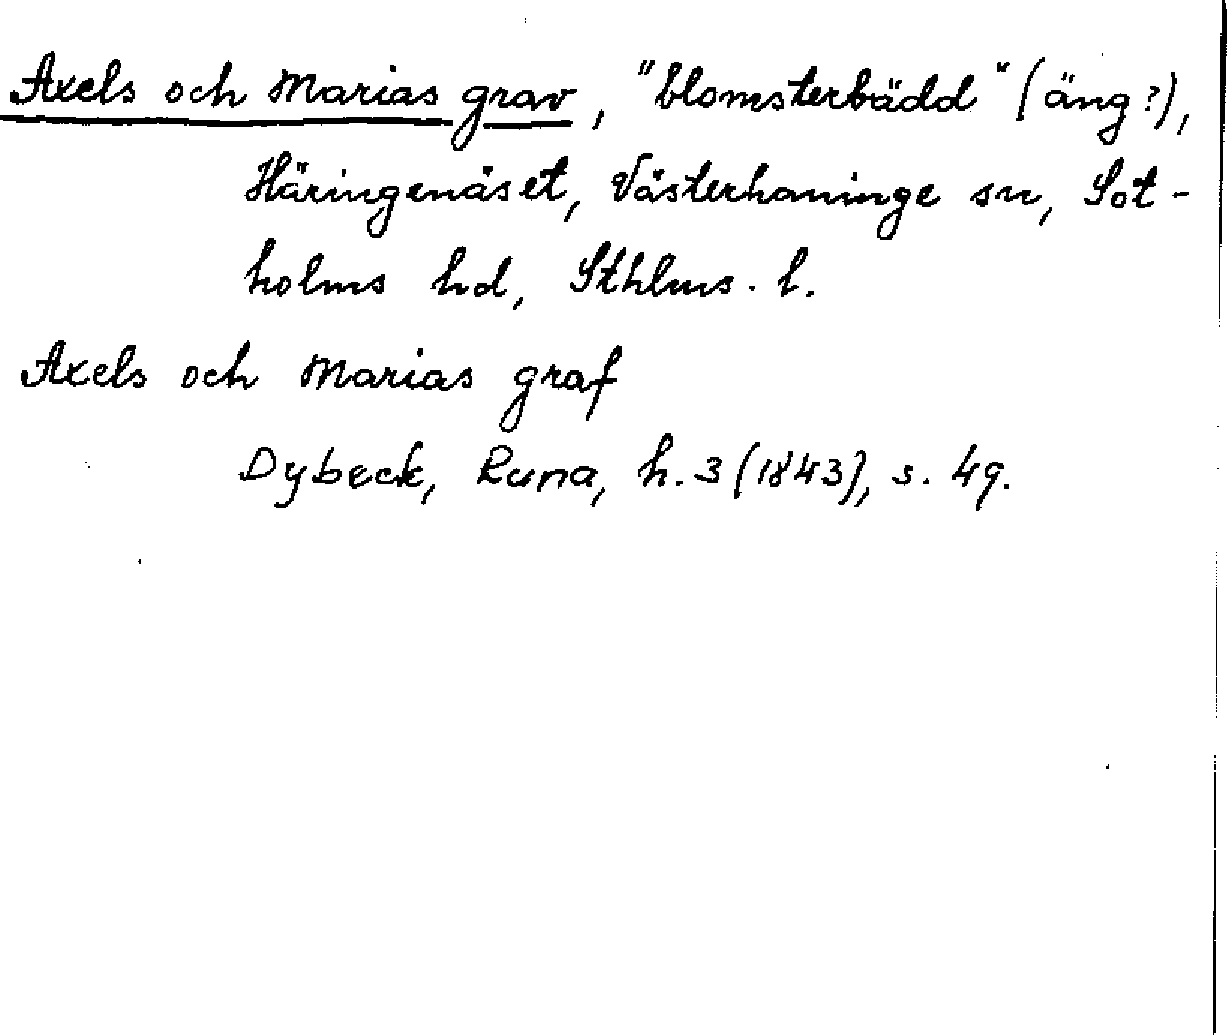 Axels och Marias grav, "blomsterbädd" (äng?),
Häringenäset, Västerhaninge sn, Sot-
holms hd, Sthlms. l.
Axels och Marias graf
Dybeck, Runa, h. 3 (1843), s. 49.